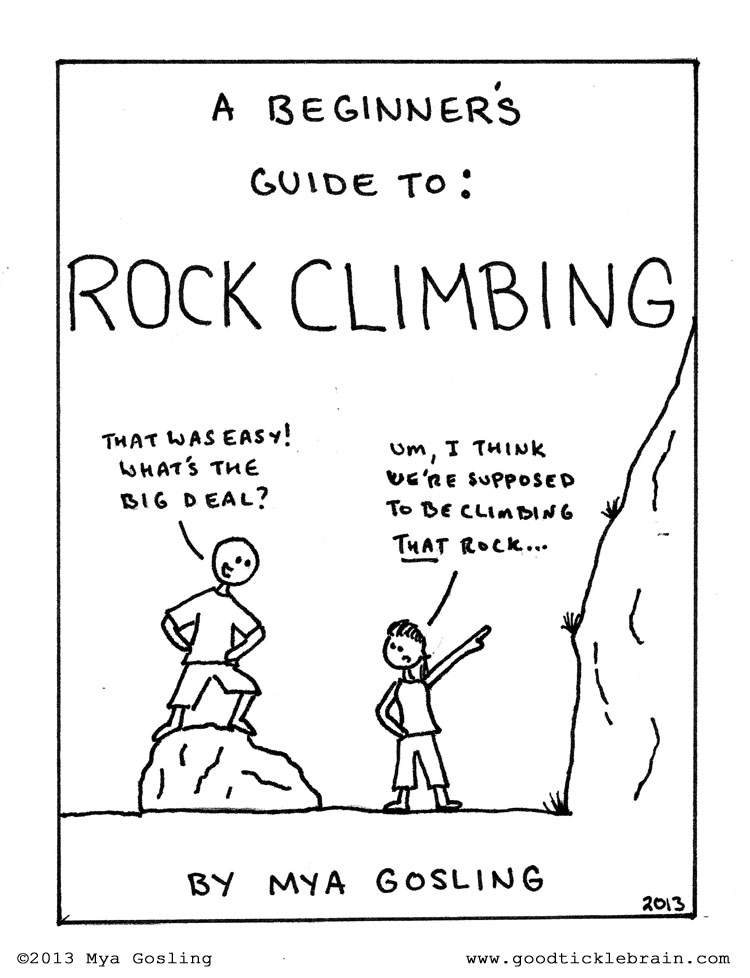 A BEGINNER'S
GUIDE TO:
ROCK CLIMBING
THAT WAS EASY!
WHAT'S THE
BIG DEAL?
UM, I THINK
WE'RE SUPPOSED
TO BE CLIMBING
THAT ROCK...
BY MYA GOSLING
2013
©2013 Mya Gosling
www.goodticklebrain.com